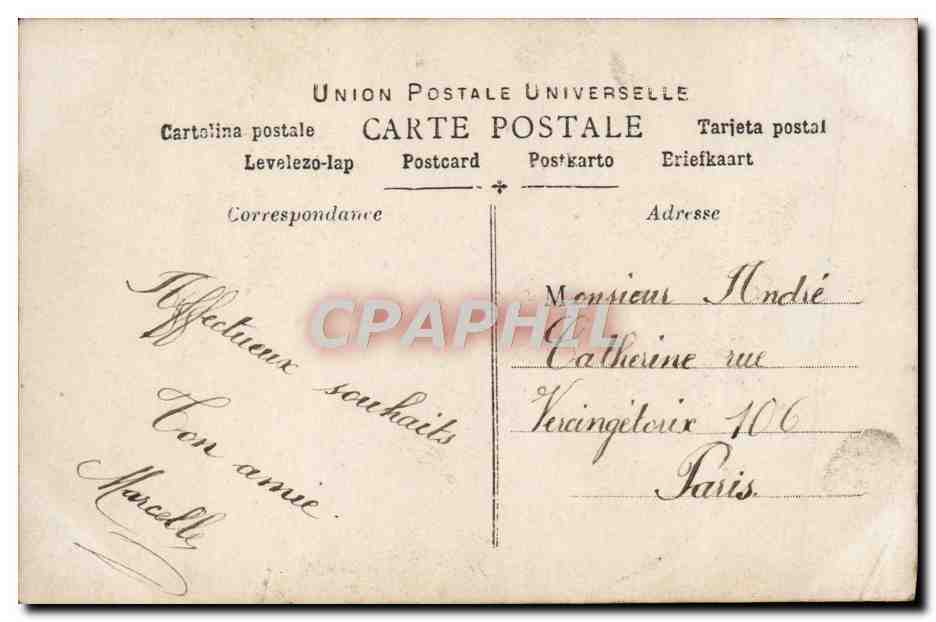 UNION POSTALE UNIVERSELLE
Cartolina postale CARTE POSTALE Tarjeta postal
Levelezo-lap Postcard Postkarto Briefkaart
Correspondance
Adresse
Affectueux souhaits
Ton amie.
Marcelle
Monsieur André
Catherine rue
Vercingétorix 106
Paris.
CPAPHIL